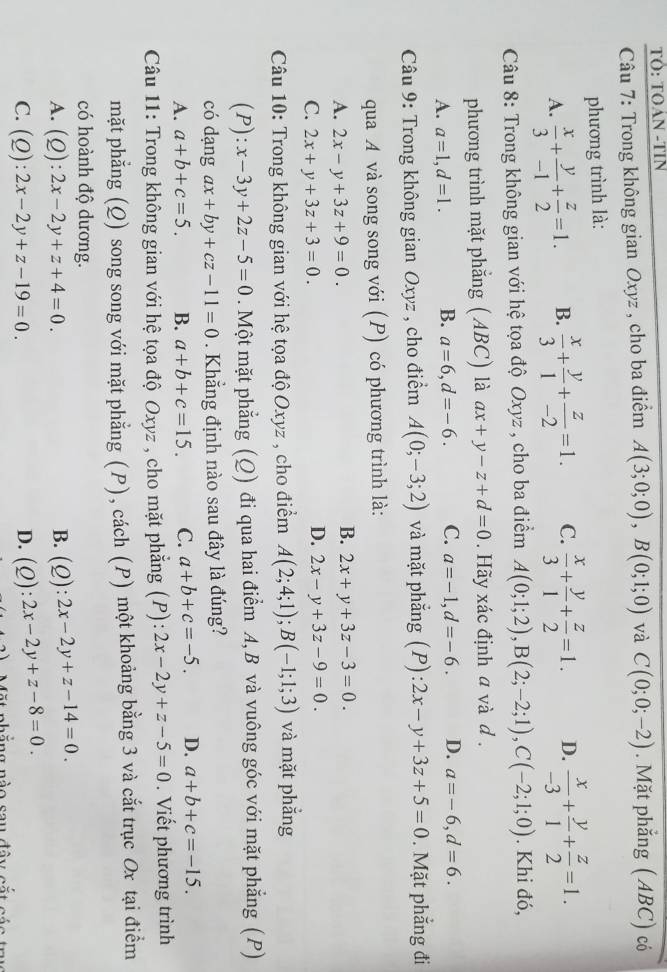 TỔ: TOÁN -TIN
Câu 7: Trong không gian Oxyz, cho ba điểm A(3;0;0), B(0;1;0) và C(0;0;-2). Mặt phẳng (ABC) có
phương trình là:
A. x/3 + y/-1 + z/2 = 1. B. x/3 + y/1 + z/-2 = 1. C. x/3 + y/1 + z/2 = 1. D. x/-3 + y/1 + z/2 = 1.
Câu 8: Trong không gian với hệ tọa độ Oxyz, cho ba điểm A(0;1;2), B(2;-2;1), C(-2;1;0). Khi đó,
phương trình mặt phẳng (ABC) là ax+y-z+d=0. Hãy xác định a và d.
A. a=1,d=1. B. a=6,d=-6. C. a=-1,d=-6. D. a=-6,d=6.
Câu 9: Trong không gian Oxyz, cho điểm A(0;-3;2) và mặt phẳng (P):2x-y+3z+5=0. Mặt phẳng đi
qua A và song song với (P) có phương trình là:
A. 2x-y+3z+9=0. B. 2x+y+3z-3=0.
C. 2x+y+3z+3=0. D. 2x-y+3z-9=0.
Câu 10: Trong không gian với hệ tọa độ Oxyz, cho điểm A(2;4;1);B(-1;1;3) và mặt phẳng
(P):x-3y+2z-5=0. Một mặt phẳng (Q) đi qua hai điểm A,B và vuông góc với mặt phẳng (P)
có dạng ax+by+cz-11=0. Khẳng định nào sau đây là đúng?
A. a+b+c=5. B. a+b+c=15. C. a+b+c=-5. D. a+b+c=-15.
Câu 11: Trong không gian với hệ tọa độ Oxyz, cho mặt phẳng (P):2x-2y+z-5=0. Viết phương trình
mặt phẳng (Q) song song với mặt phẳng (P), cách (P) một khoảng bằng 3 và cắt trục Ox tại điểm
có hoành độ dương.
A. (Q):2x-2y+z+4=0. B. (Q):2x-2y+z-14=0.
C. (Q):2x-2y+z-19=0. D. (Q):2x-2y+z-8=0.
Mặt phẳng nào sau đây cắt các